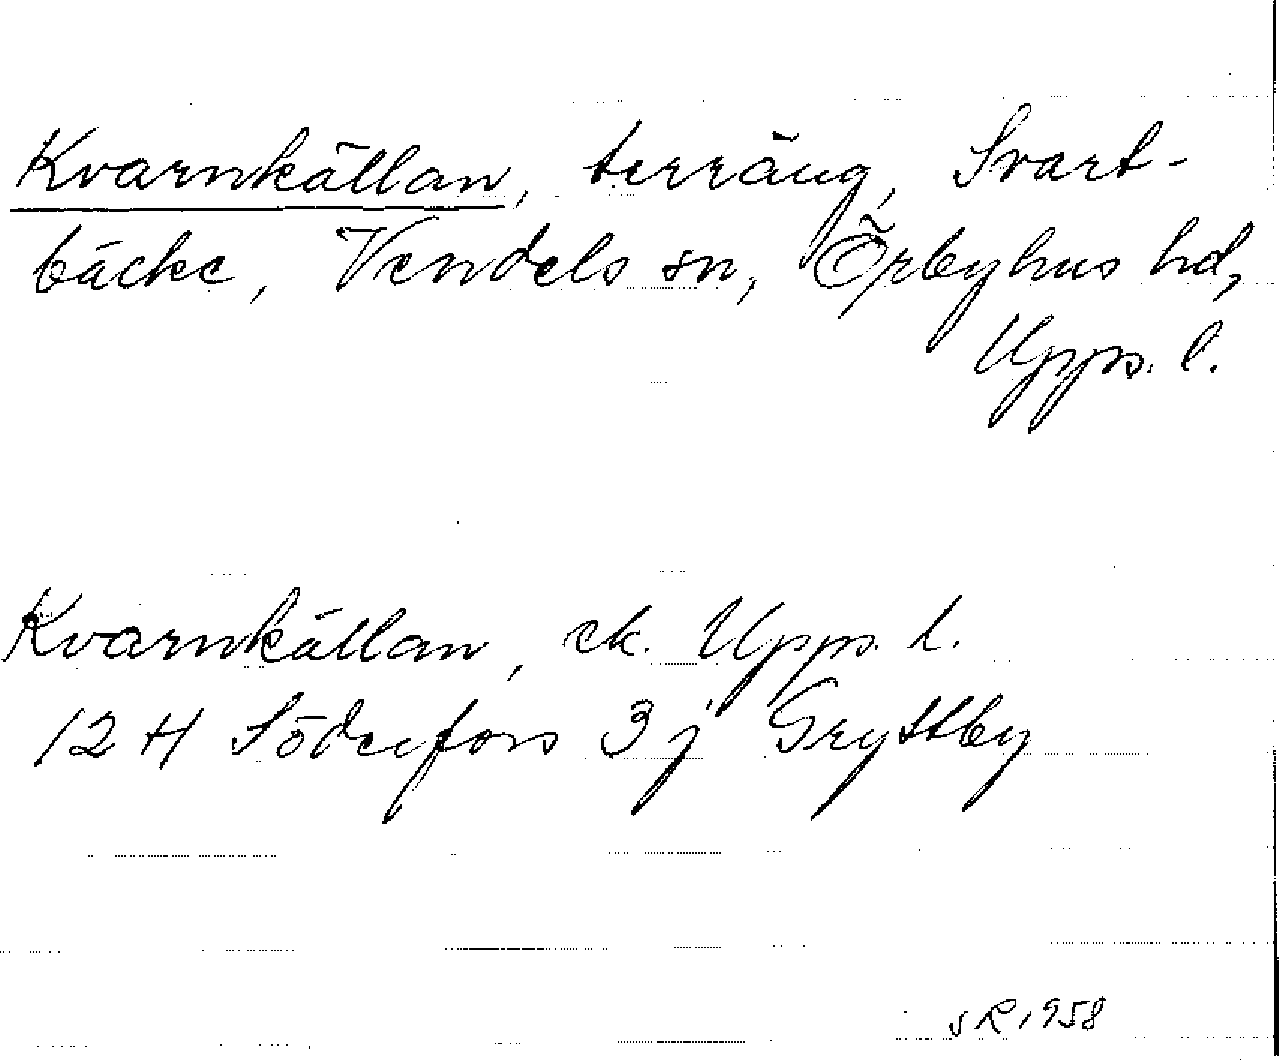 Kvarnkällan, terräng, Svart-
bäcke, Vendels sn, Örbyhus hd,
Upps. l.
Kvarnkällan, ek. Upps. l.
12 H Söderfors 3 j Gryttby
SR 1958